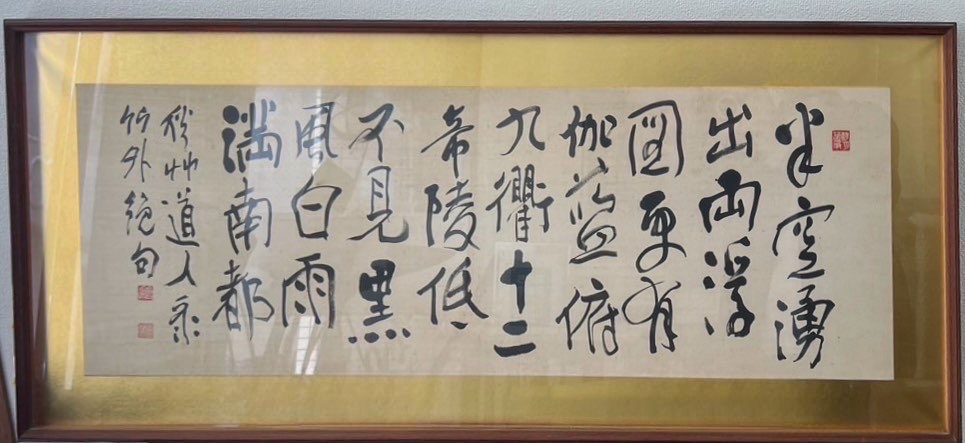 半空湧
出兩浮
圖更有
伽藍俯
九衢十二
帝陵低
不見黒
風白雨
満南都
秋艸道人录
竹外絶句